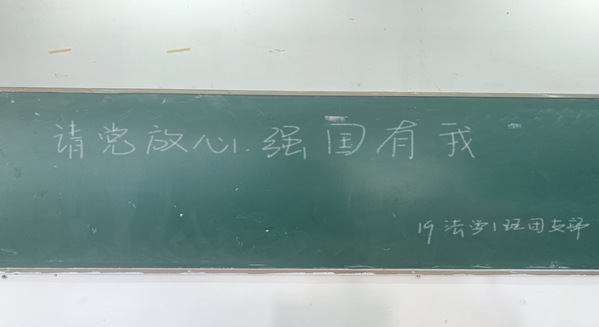 请党放心.强国有我
19法学1班团支部